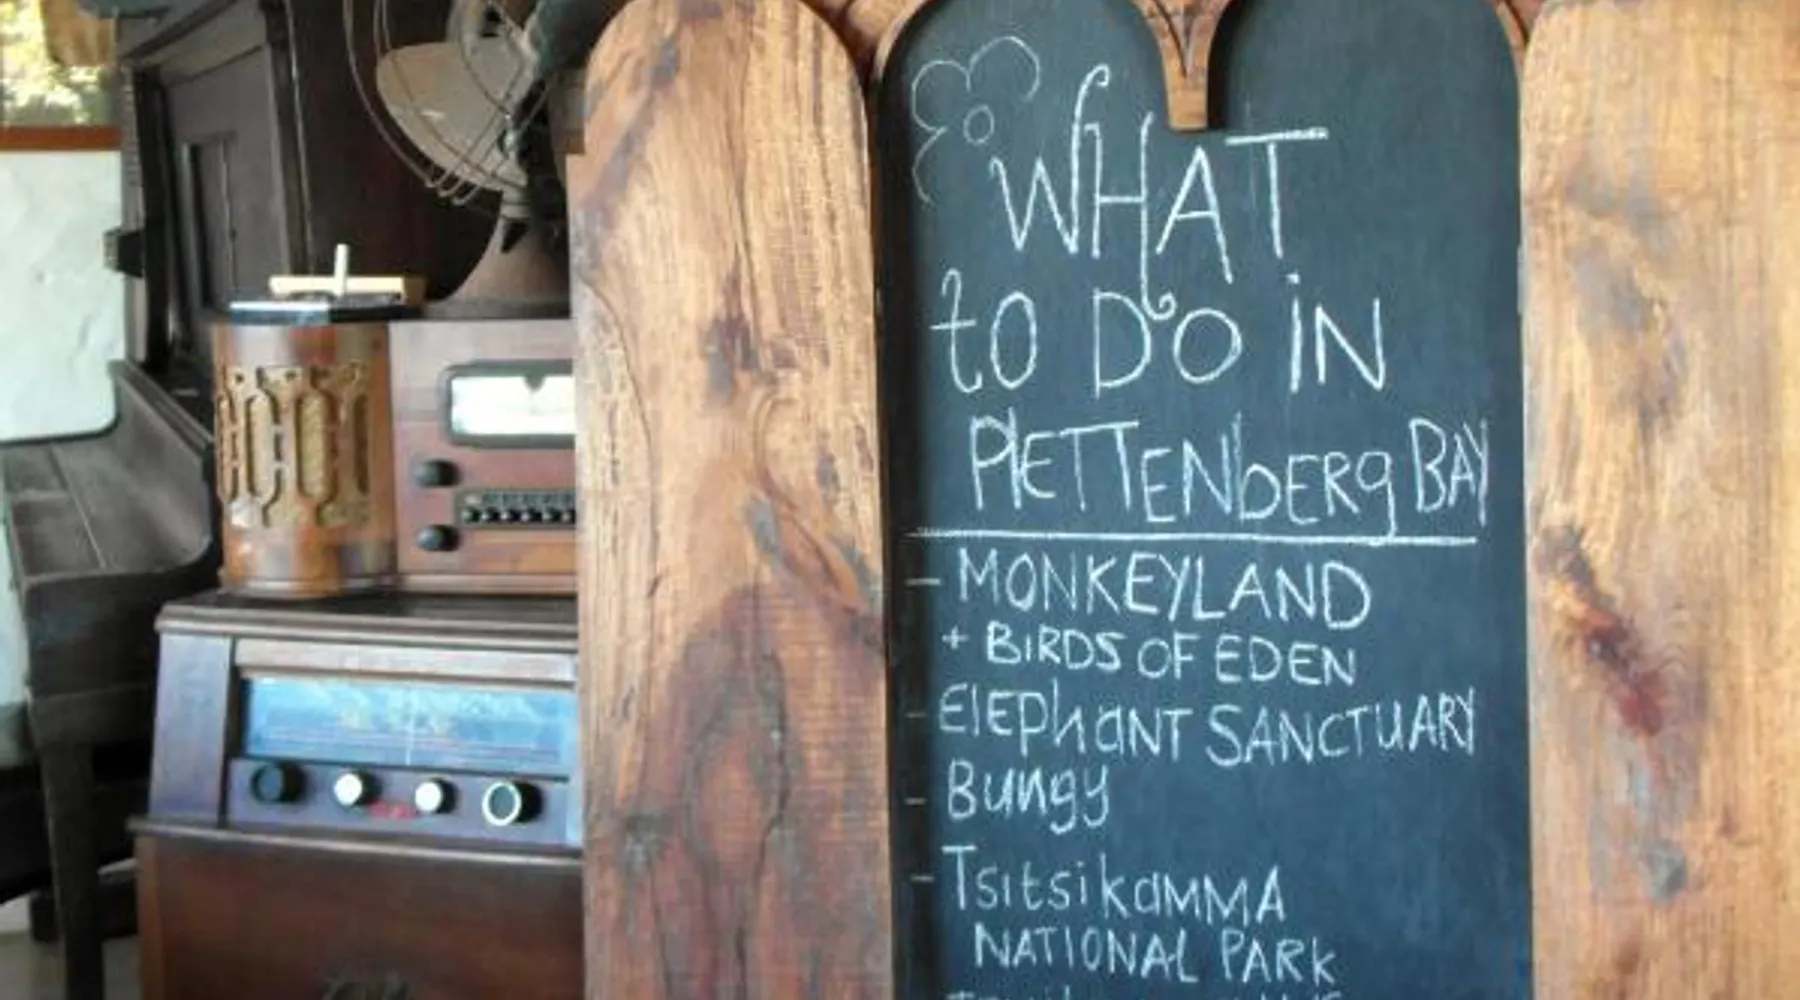 WHAT
to DO iN
PlETTENbERg BAY
- MONKEYLAND
+ BiRDS OF EDEN
- ElEphaNT SANCTUARY
- Bungy
- TsitsikaMMA
NATIONAL PARk